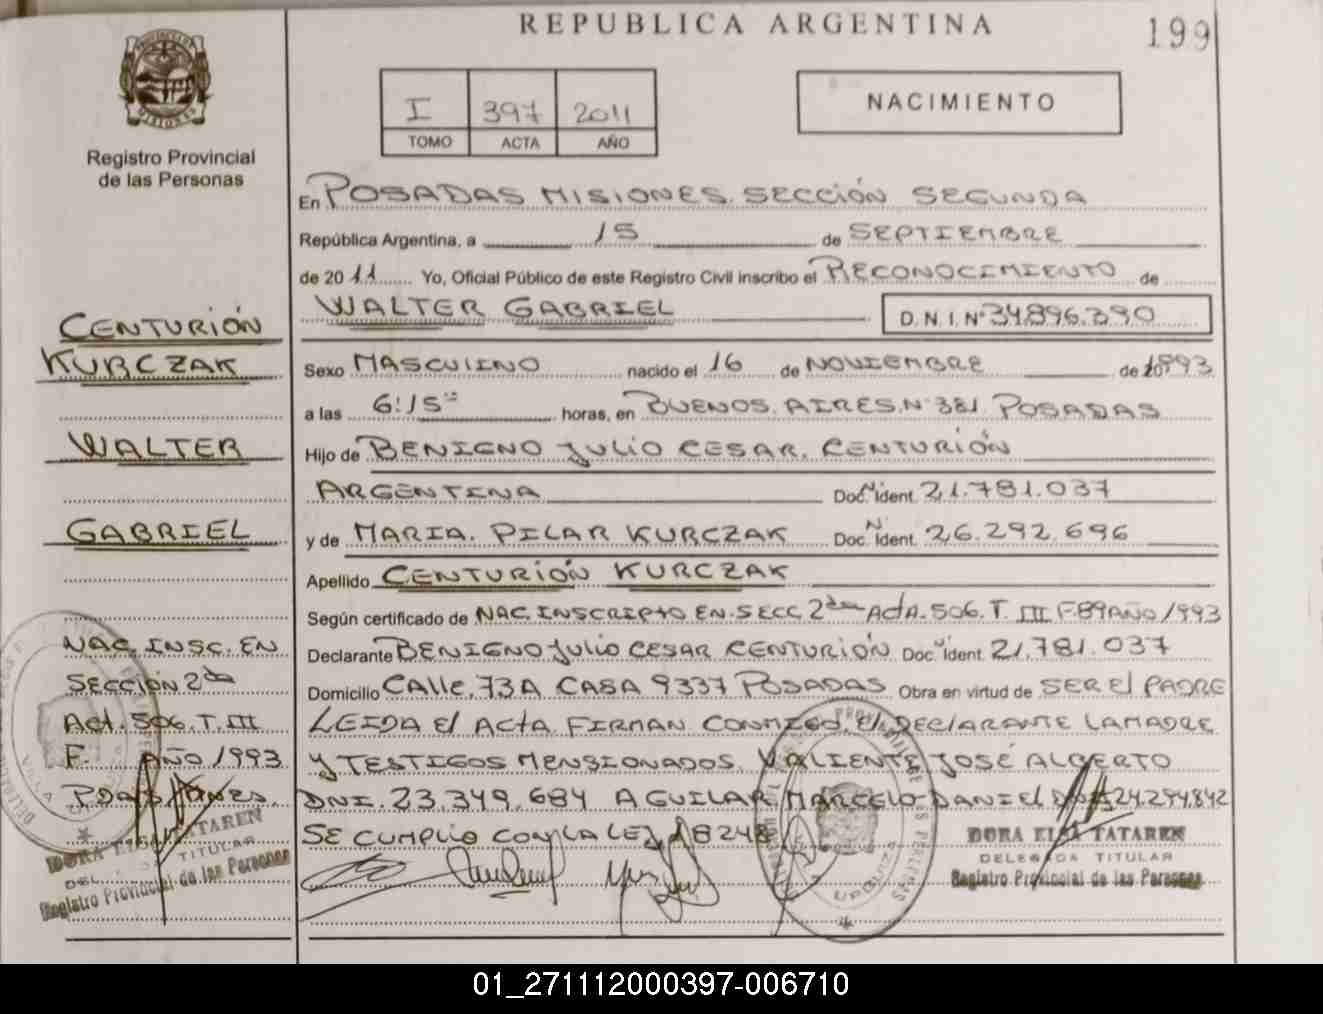 REPUBLICA ARGENTINA
199
I 397 2011
TOMO ACTA AÑO
NACIMIENTO
PROVINCIA DE MISIONES
Registro Provincial
de las Personas
En POSADAS MISIONES. SECCIÓN SEGUNDA
República Argentina, a 15 de SEPTIEMBRE
de 2011 Yo, Oficial Público de este Registro Civil inscribo el RECONOCIMIENTO de
WALTER GABRIEL D.N.I. Nº 34.896.390
Sexo MASCULINO nacido el 16 de NOVIEMBRE de 1993
a las 6:15 horas, en BUENOS. AIRES. Nº 381. POSADAS
Hijo de BENIGNO JULIO CESAR. CENTURIÓN
ARGENTINA Doc. Nº Ident. 21.781.037
y de MARIA. PILAR KURCZAK Doc. Nº Ident. 26.292.696
Apellido CENTURIÓN KURCZAK
Según certificado de NAC. INSCRIPTO EN. SECC 2da ActA. 506. T. III F-89 AÑO/1993
Declarante BENIGNO JULIO CESAR CENTURIÓN Doc. Nº Ident. 21.781.037
Domicilio CALLE. 73A CASA 9337 POSADAS Obra en virtud de SER El PADRE
LEIDA El ACTA FIRMAN CONMIGO, El DECLARANTE LA MADRE
Y TESTIGOS MENSIONADOS. VALIENTE JOSÉ ALBERTO
DNI. 23.349.684 AGUILAR MARCELO DANIEL DNI 24.294.842
SE CUMPLIO CON LA LEY 18248
DORA ELSA TATAREN
DELEGADA TITULAR
Registro Provincial de las Personas
CENTURIÓN
KURCZAK
WALTER
GABRIEL
NAC. INSC. EN
SECCIÓN 2da
Act. 506. T. III
F. AÑO/1993
DORA ELSA TATAREN
DELEGADA TITULAR
Registro Provincial de las Personas
01_271112000397-006710